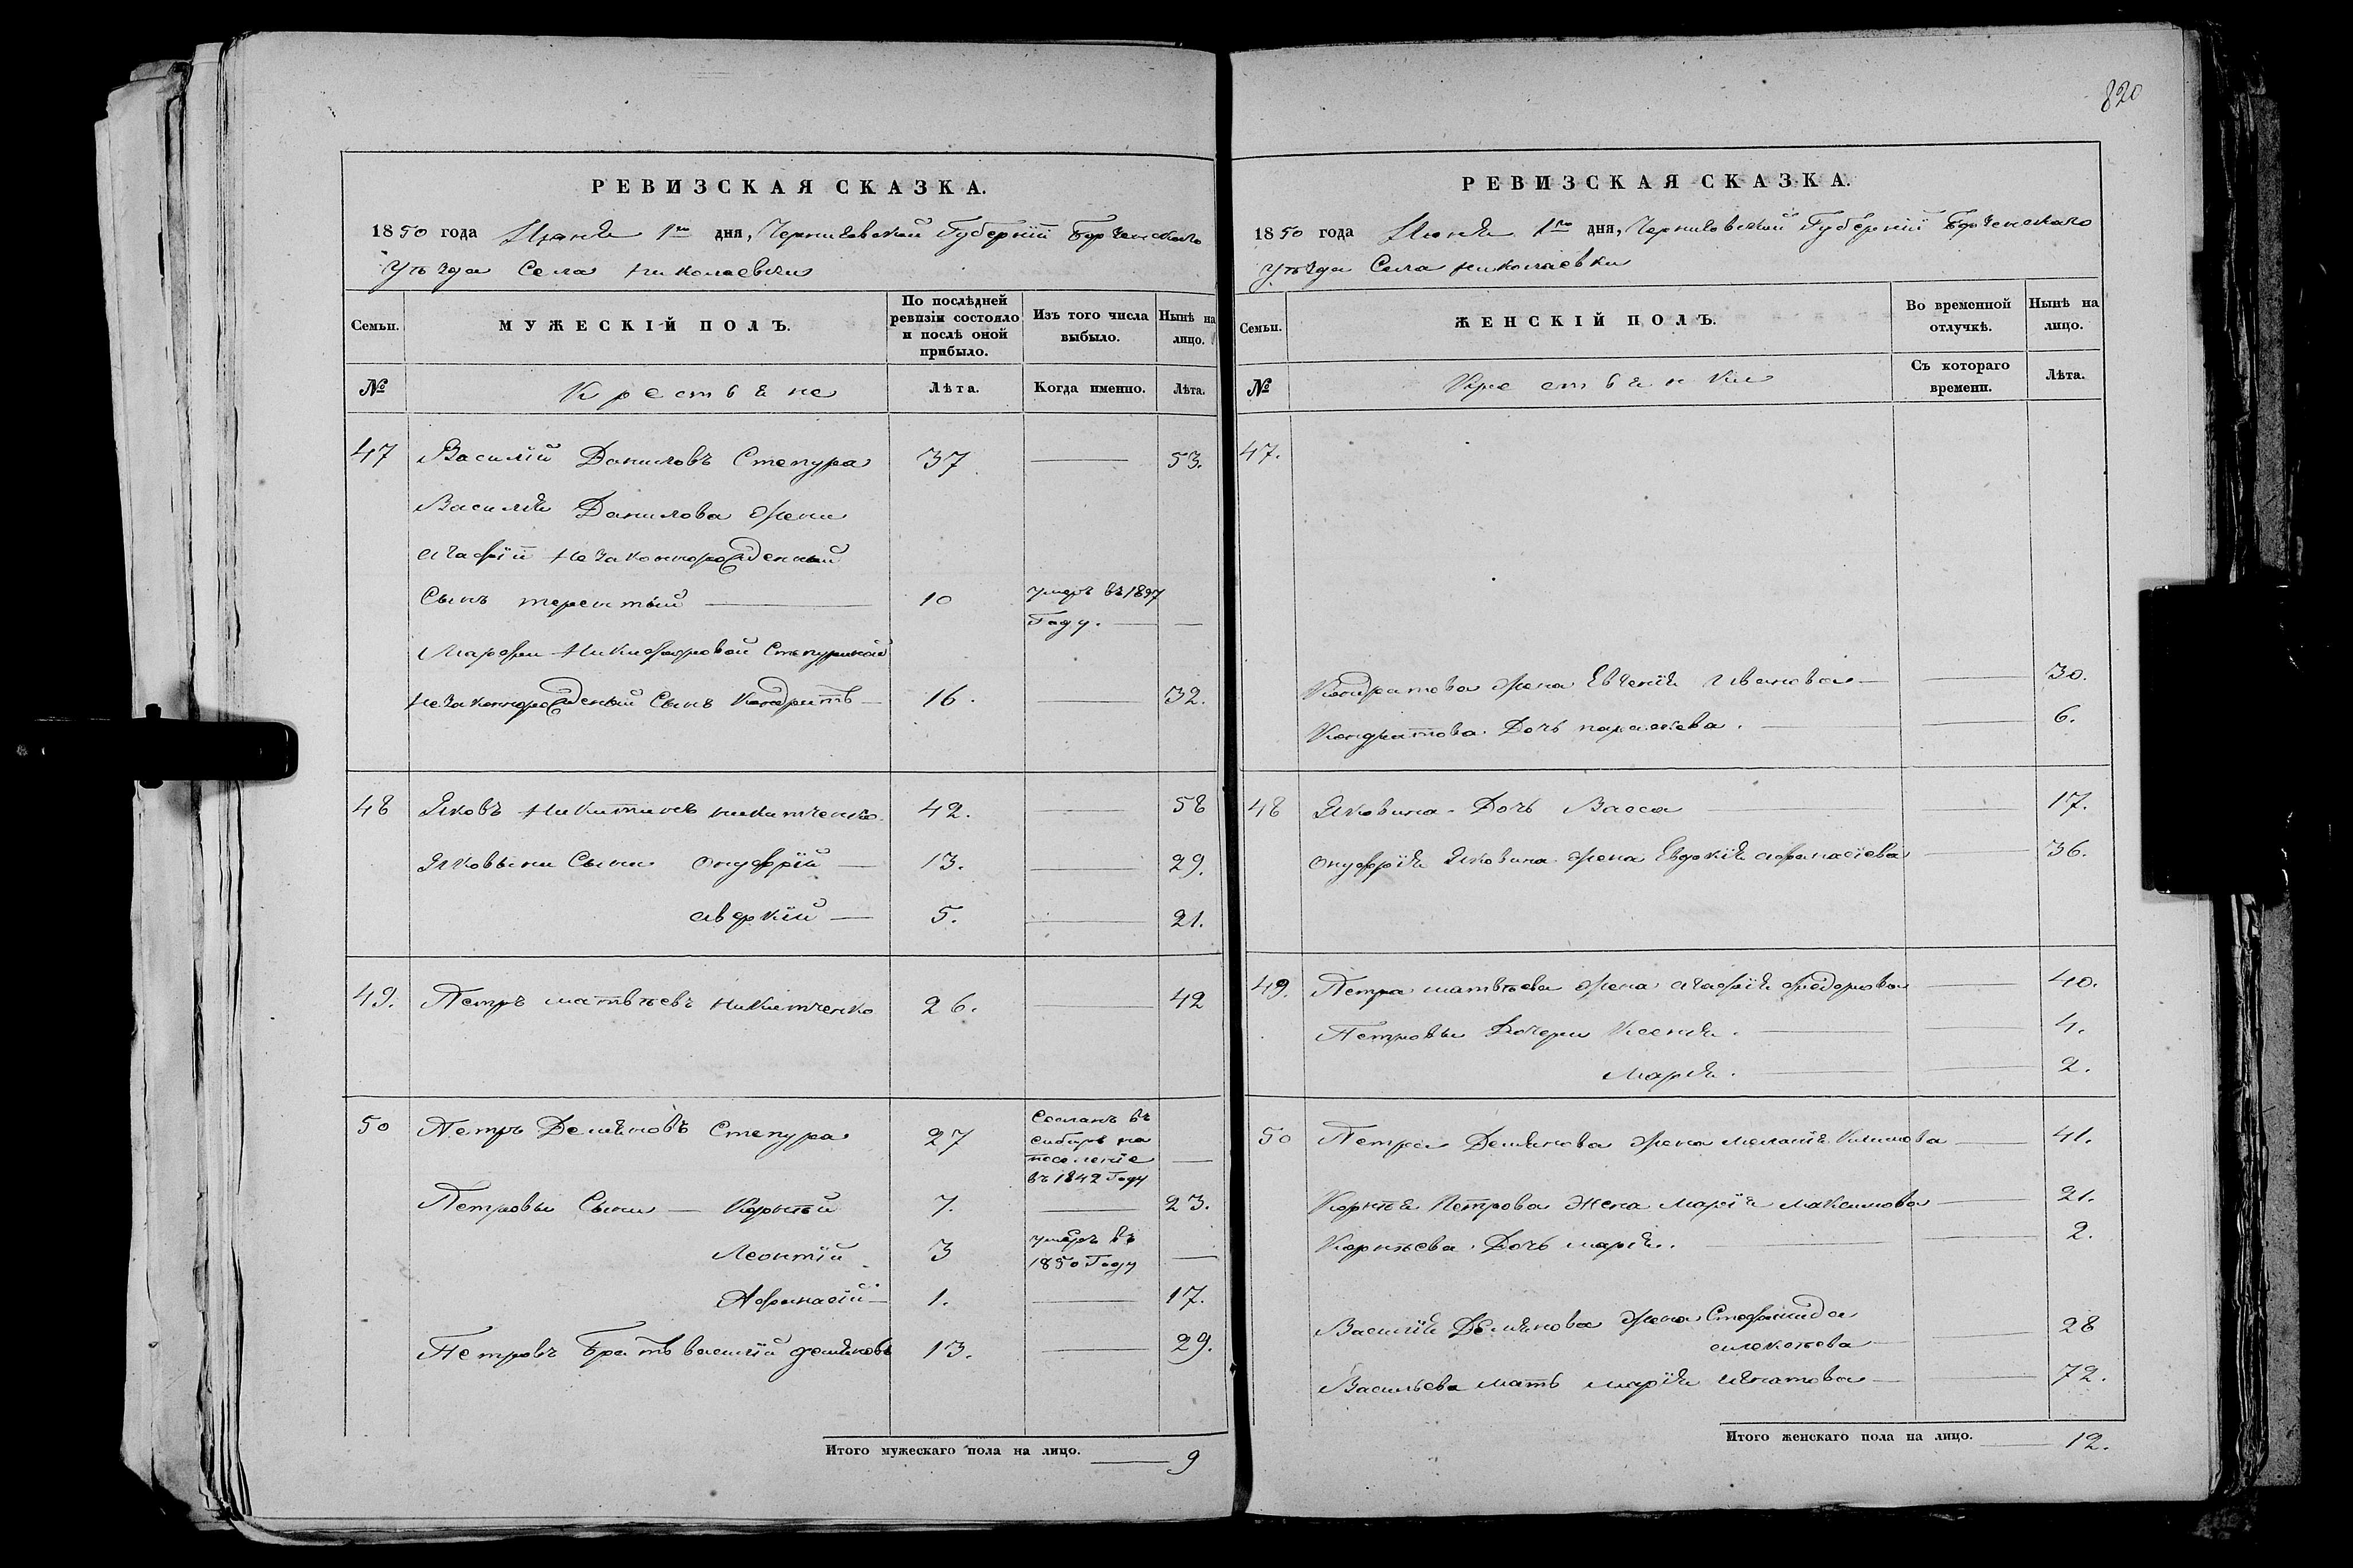 820
РЕВИЗСКАЯ СКАЗКА.
1850 года Июня 1го дня, Черниговской Губерніи Борзенскаго
Уѣзда Села Николаевки
Семьи.
МУЖЕСКІЙ ПОЛЪ.
По послѣдней ревизіи состояло и послѣ оной прибыло.
Изъ того числа выбыло.
Нынѣ на лицо.
№
Крестьяне
Лѣта.
Когда именно.
Лѣта.
47 Василій Даниловъ Степура 37 53.
Василія Данилова жены
Агафіи незаконнорожденный
Сынъ терентій 10 умеръ въ 1837
Году.
Марфы Никифоровой Степуриной
незаконнорожденый Сынъ Кондратъ 16. 32.
48 Яковъ Никитинъ никитченко 42. 58
Яковыны Сыны Онуфрій 13. 29.
Авдкій 5. 21.
49. Петръ матвѣевъ никитченко 26. 42
50 Петръ Демяновъ Степура 27 Сосланъ въ
сибирь на
поселеніе
въ 1842 Году
Петровы Сыны Корнѣй 7. 23.
Леонтій 3 умеръ въ
1850 Году
Афанасій 1. 17.
Петровъ Братъ василій демяновъ 13. 29.
Итого мужескаго пола на лицо. 9
РЕВИЗСКАЯ СКАЗКА.
1850 года Июня 1го дня, Черниговской Губерніи Борзенскаго
Уѣзда Села николаевки
Семьи.
ЖЕНСКІЙ ПОЛЪ.
Во временной отлучкѣ.
Нынѣ на лицо.
№
Крестьянки
Съ котораго времени.
Лѣта.
47.
Кондратова жена Евгенія Иванова 30.
Кондратова Дочь параскева. 6.
48 Яковина Дочь Васса 17.
Онуфрія Яковина жена Евдокія афанасіева 36.
49. Петра матвѣева жена агафія федорова 40.
Петровы Дочери Ксенія. 4.
Марія. 2.
50 Петра Демянова жена меланія Климова 41.
Корнѣя Петрова жена марія максимова 21.
Корнѣева Дочь марія. 2.
Василія Демянова жена Стефанида
алексѣева 28
Васильева мать марія игнатова 72.
Итого женскаго пола на лицо. 12.